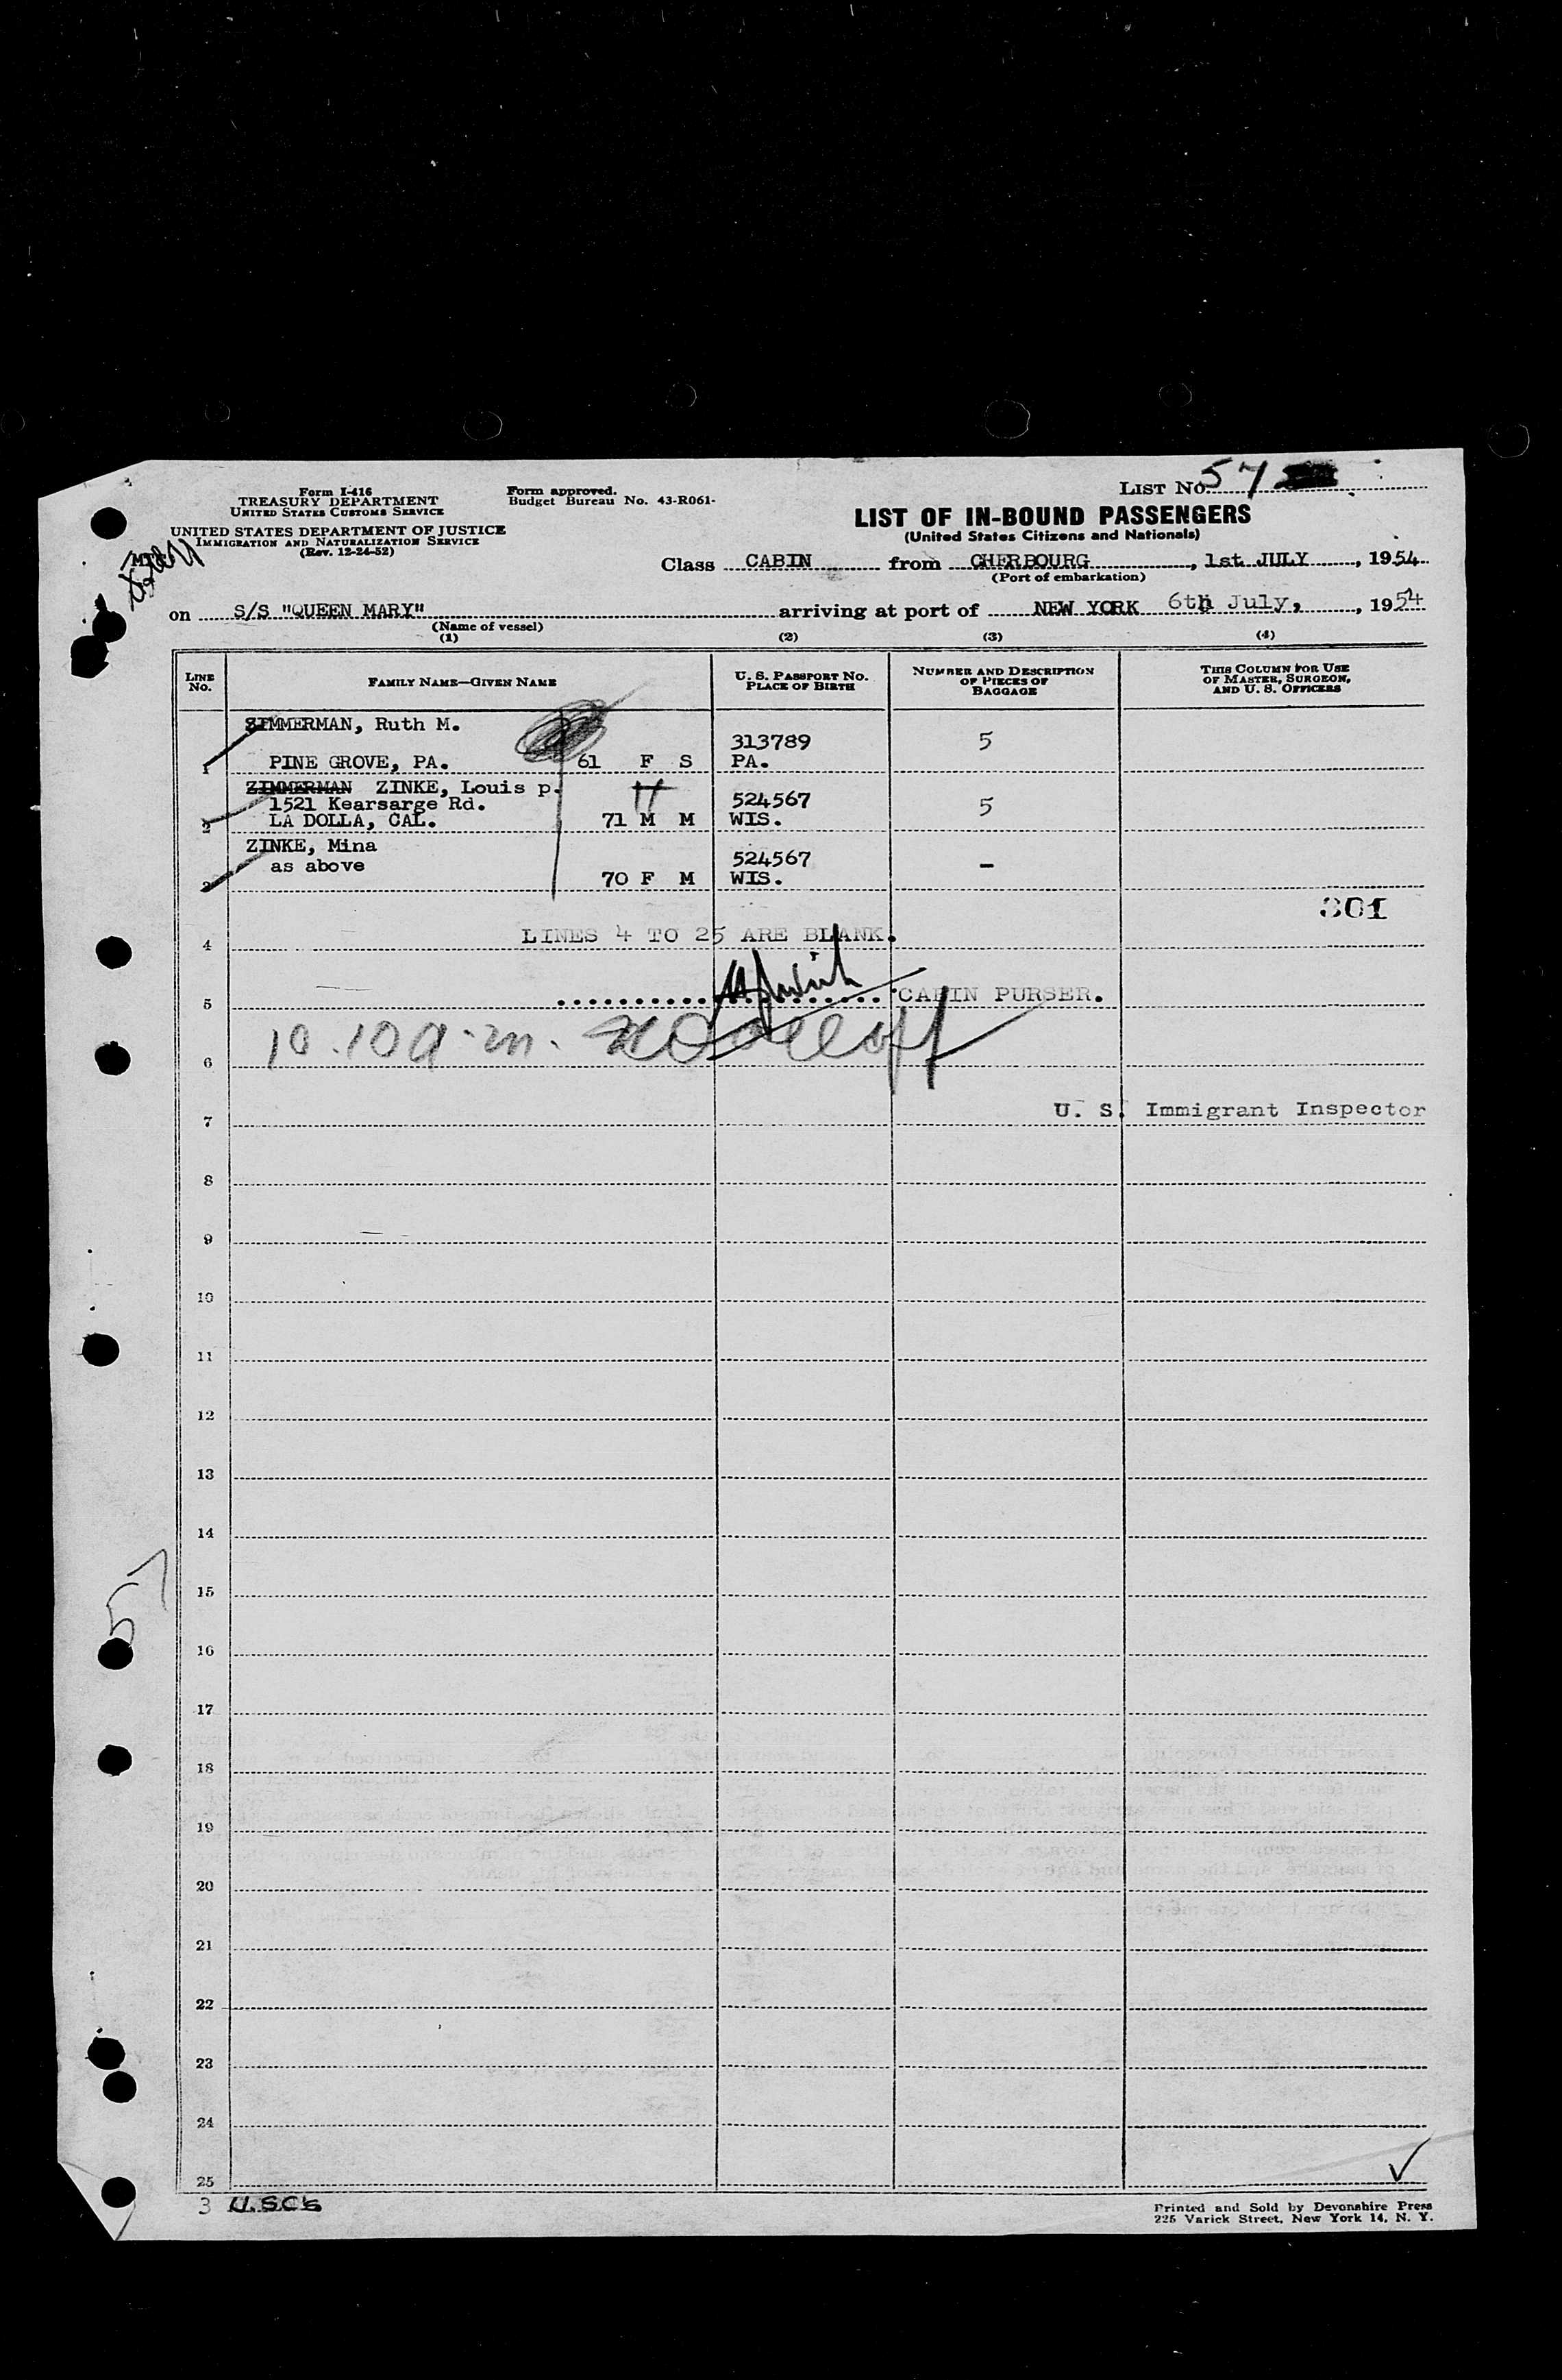 Form I-416
TREASURY DEPARTMENT
UNITED STATES CUSTOMS SERVICE
UNITED STATES DEPARTMENT OF JUSTICE
IMMIGRATION AND NATURALIZATION SERVICE
(Rev. 12-24-52)
Form approved.
Budget Bureau No. 43-R061-
LIST No. 57
LIST OF IN-BOUND PASSENGERS
(United States Citizens and Nationals)
Class CABIN from CHERBOURG, 1st JULY, 1954
(Port of embarkation)
on S/S "QUEEN MARY" arriving at port of NEW YORK 6th July, , 1954
(Name of vessel)
(1) (2) (3) (4)
LINE No. FAMILY NAME—GIVEN NAME U. S. PASSPORT No. PLACE OF BIRTH NUMBER AND DESCRIPTION OF PIECES OF BAGGAGE THIS COLUMN FOR USE OF MASTER, SURGEON, AND U. S. OFFICERS
ZIMMERMAN, Ruth M. 313789 5
1 PINE GROVE, PA. 61 F S PA.
ZIMMERMAN ZINKE, Louis p.
1521 Kearsarge Rd. 524567 5
2 LA DOLLA, CAL. 71 M M WIS.
ZINKE, Mina
as above 524567 –
3 70 F M WIS.
301
LINES 4 TO 25 ARE BLANK.
4
5 CABIN PURSER.
10.10 a.m.
6
U. S. Immigrant Inspector
7
8
9
10
11
12
13
14
15
57
16
17
18
19
20
21
22
23
24
25
3 U.S.C's
Printed and Sold by Devonshire Press
225 Varick Street, New York 14, N. Y.